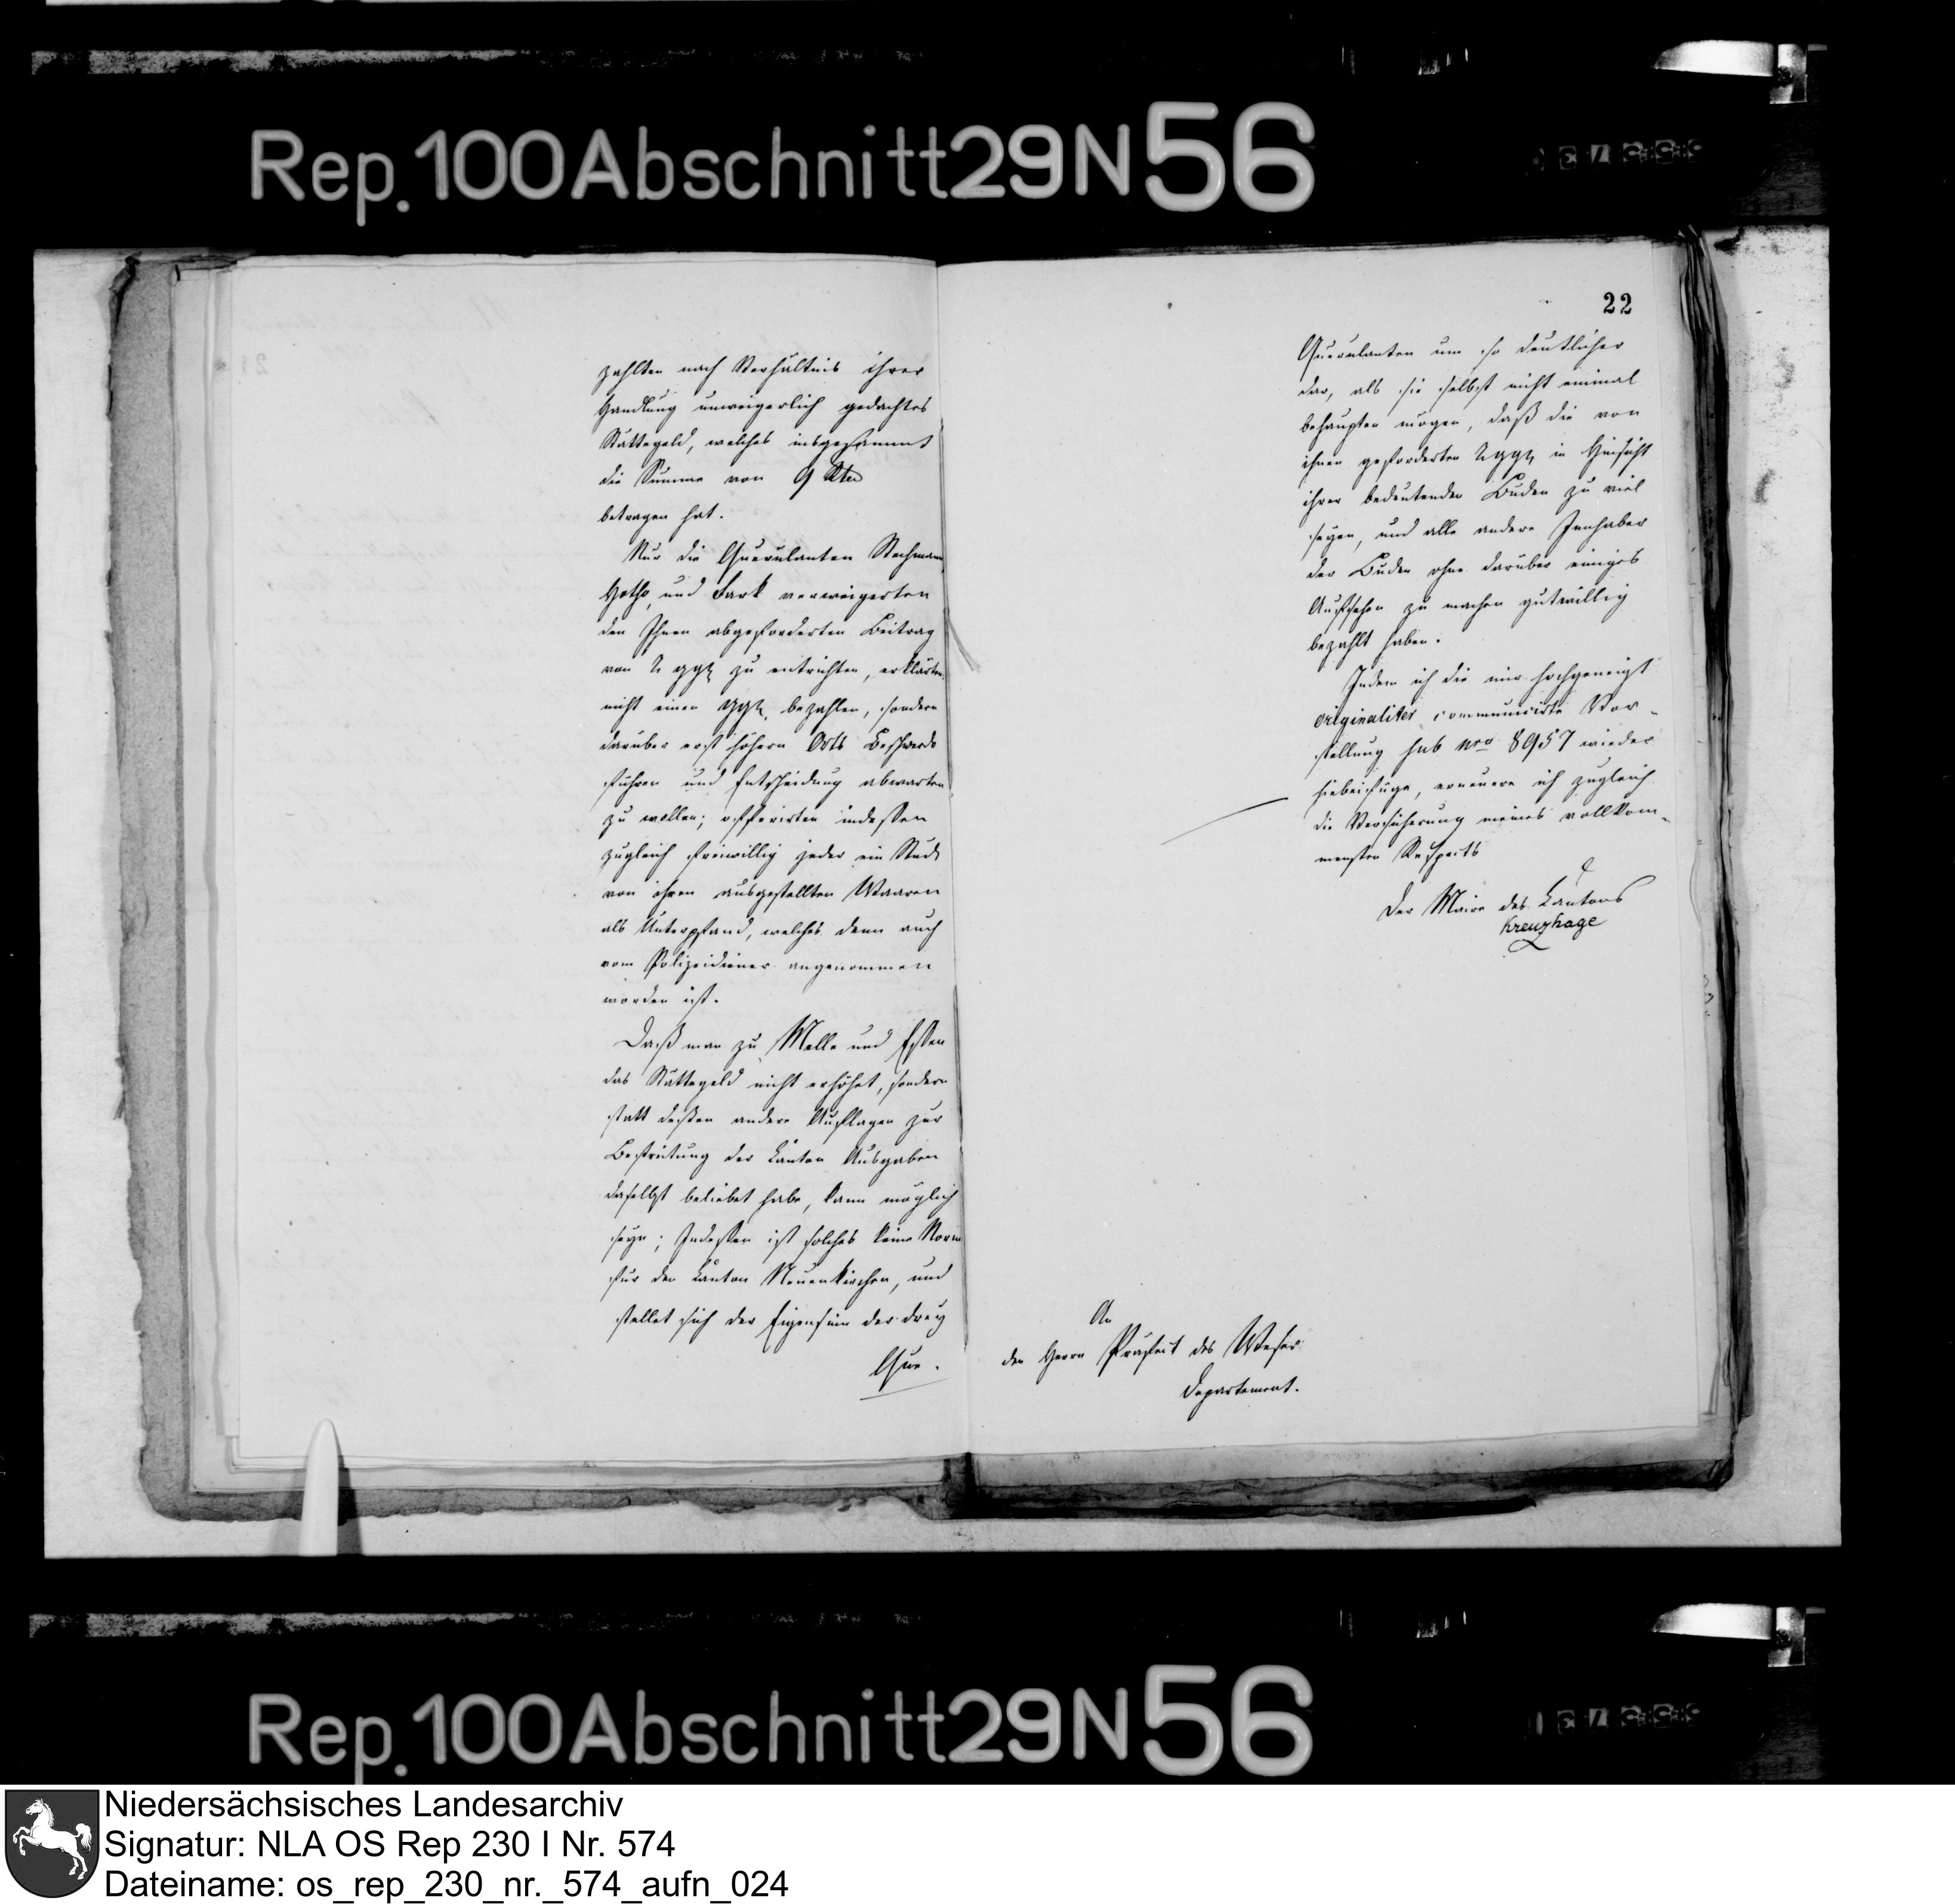 Rep. 100 Abschnitt 29 N 56
zahlten nach Verhältnis ihrer
Handlung unweigerlich gedachtes
Stättegeld, welches insgesammt
die Summe von 9 Rtlr
betragen hat.
Nur die Querulanten
Gothe, und Fark verweigerten
den Ihnen abgeforderten Beitrag
von 2 ggr zu entrichten, erklärten
nicht einen ggr, bezahlen, sondern
darüber erst höhern Orts Beschwerde
führen und Entscheidung abwarten
zu wollen; offerirten indessen
zugleich freiwillig jeder ein Stück
von ihren ausgestellten Waaren
als Unterpfand, welches denn auch
vom Polizeidiener angenommen
worden ist.
Daß man zu Melle und Essen
das Stättegeld nicht erhöhet, sondern
statt dessen andere Auflagen zur
Bestreitung der Canton Ausgaben
daselbst beliebet habe, kann möglich
seyn; Indessen ist solches keine Norm
für den Canton Neuenkirchen, und
stellet sich der Eigensinn der drey
Que.
22
Querulanten um so deutlicher
dar, als sie selbst nicht einmal
behaupten mögen, daß die von
ihnen geforderten 2 ggr in Hinsicht
ihrer bedeutenden Buden zu viel
seyen, und alle andere Innhaber
der Buden ohne darüber einiges
Aufsehen zu machen gutwillig
bezahlt haben.
Indem ich die mir hochgeneigt
originaliter communicirte Vor-
stellung sub nro 8957 wieder
hiebeifüge, erneuere ich zugleich
die Versicherung meines vollkom-
mensten Respects
Der Maire des Cantons
Kreuzhage
An
den Herrn Präfect des Weser
Departement.
Rep. 100 Abschnitt 29 N 56
Niedersächsisches Landesarchiv
Signatur: NLA OS Rep 230 I Nr. 574
Dateiname: os_rep_230_nr._574_aufn_024